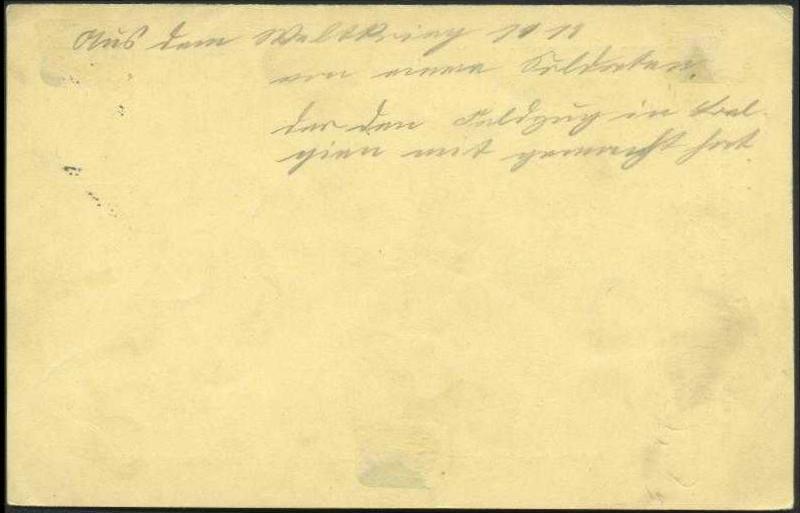 Aus dem Weltkrieg 1911
von einem Soldaten,
der den Feldzug in Bel-
gien mit gemacht hat.